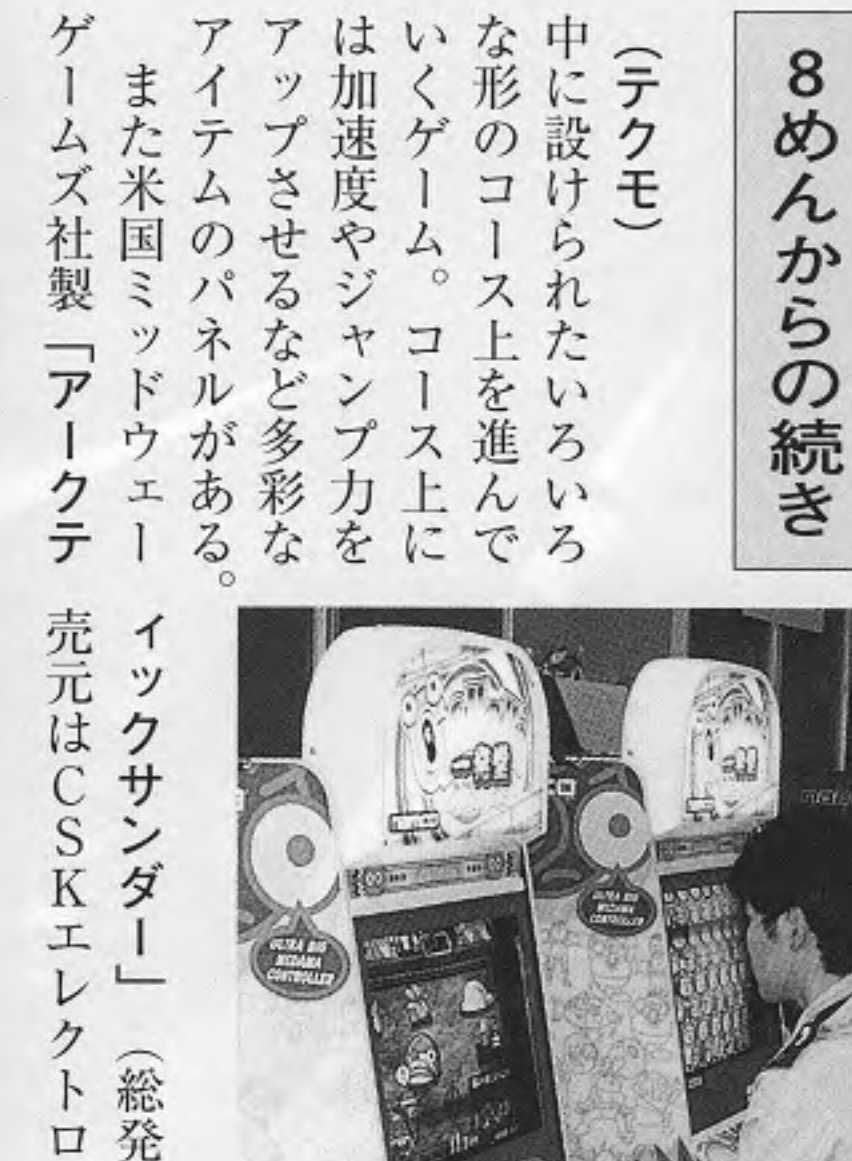 8めんからの続き
(テクモ)
中に設けられたいろいろ
な形のコース上を進んで
いくゲーム。コース上に
は加速度やジャンプ力を
アップさせるなど多彩な
アイテムのパネルがある。
また米国ミッドウェー
ゲームズ社製「アークテ
ィックサンダー」(総発
売元はCSKエレクトロ
ULTRA BIG
MEDAMA
CONTROLLER
ULTRA BIG
MEDAMA
CONTROLLER